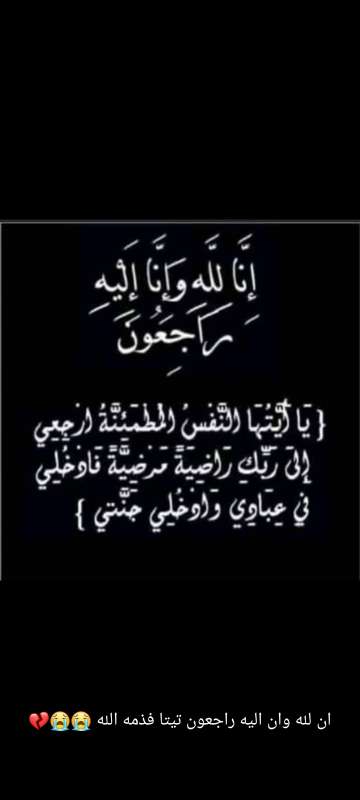 إِنَّا لِلَّهِ وَإِنَّا إِلَيْهِ
رَاجِعُونَ
{ يَا أَيَّتُهَا النَّفْسُ الْمُطْمَئِنَّةُ ارْجِعِي
إِلَى رَبِّكِ رَاضِيَةً مَرْضِيَّةً فَادْخُلِي
فِي عِبَادِي وَادْخُلِي جَنَّتِي }
ان لله وان اليه راجعون تيتا فذمه الله 😭😭💔